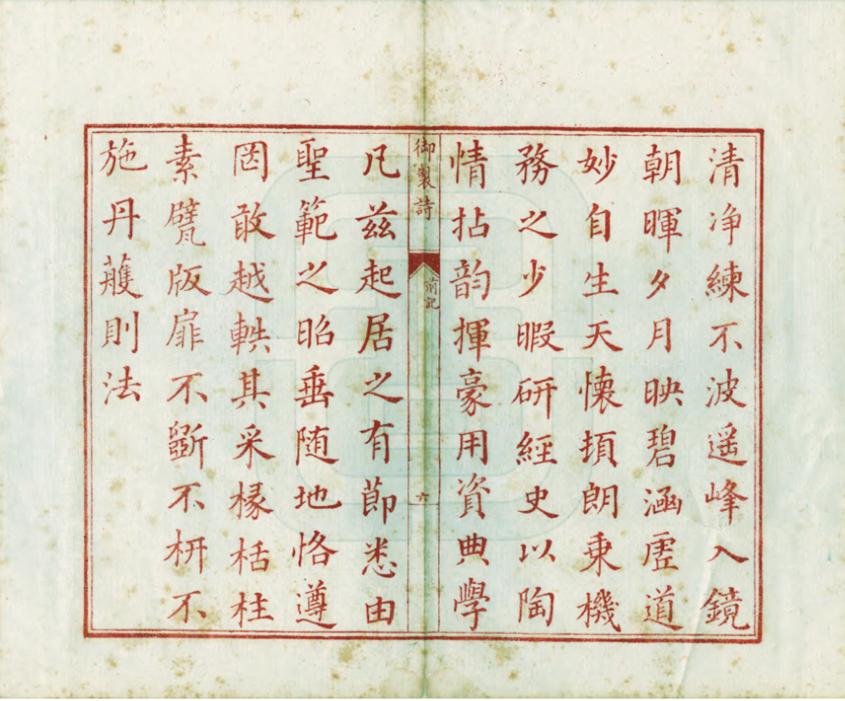 清净練不波遥峰入鏡
朝暉夕月映碧涵虛道
妙自生天懷頓朗乗機
務之少暇研經史以陶
情拈韵揮豪用資典學
御製詩
六
凡兹起居之有節悉由
聖範之昭垂随地恪遵
罔敢越軼其采椽栝柱
素甓版扉不斵不枅不
施丹雘則法